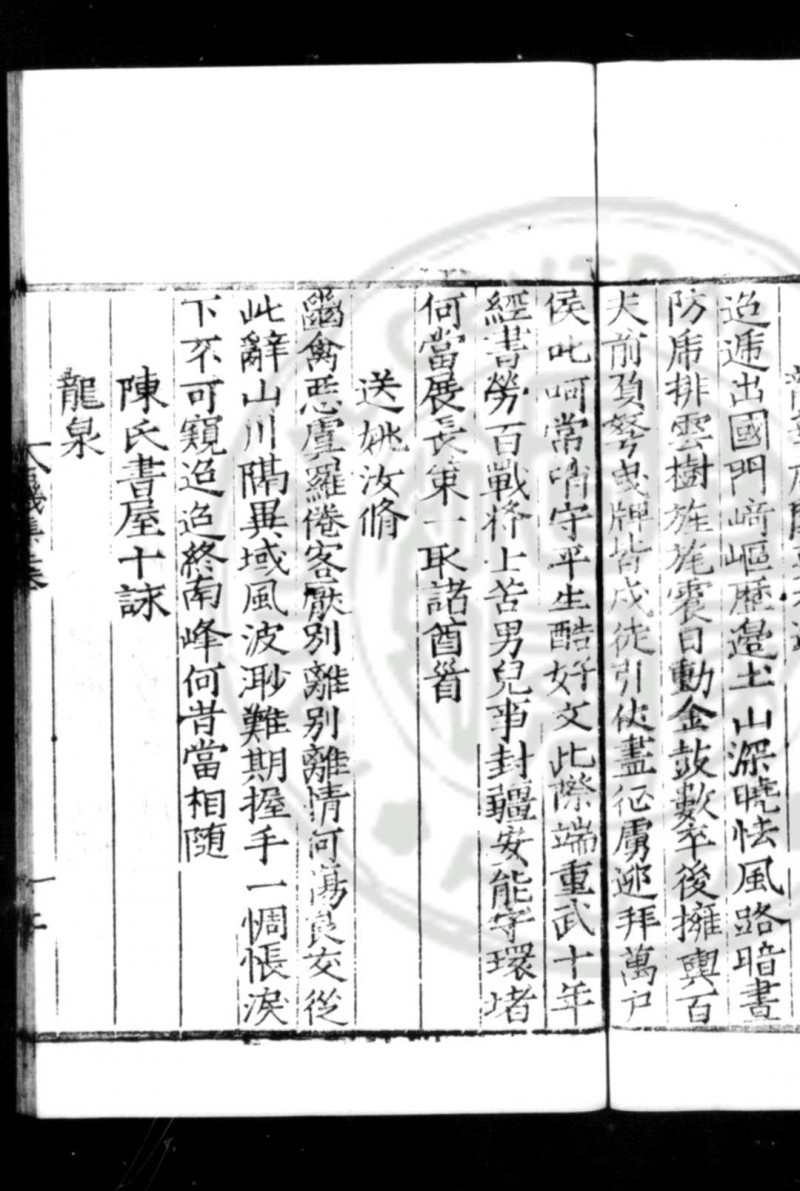 迢遞出國門﨑嶇歷邊土山深曉怯風路暗書
防虎排雲樹旌旄震日動金鼓數卒後擁輿百
夫前負弩曳牌皆戍徒引伎盡征虜迎拜萬户
侯叱呵常啃守平生酷好文此際端重武十年
經書勞百戰將士苦男兒事封疆安能守環堵
何當展長策一取諸酋首
送姚汝脩
羈禽惡虞羅倦客厭別離別離情何蕩良交從
此辭山川隔異域風波渺難期握手一惆悵淚
下不可窺迢迢終南峰何昔當相隨
陳氏書屋十詠
龍泉